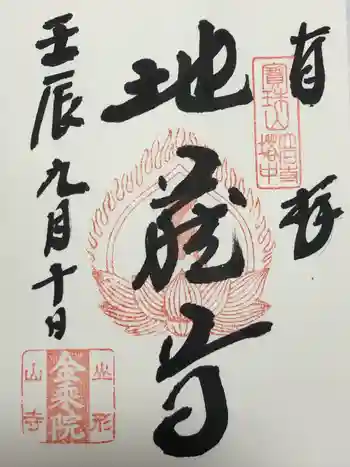 拝
寶珠山
立石寺
塔中
地蔵尊
壬辰九月十日
山形
金乘院
山寺